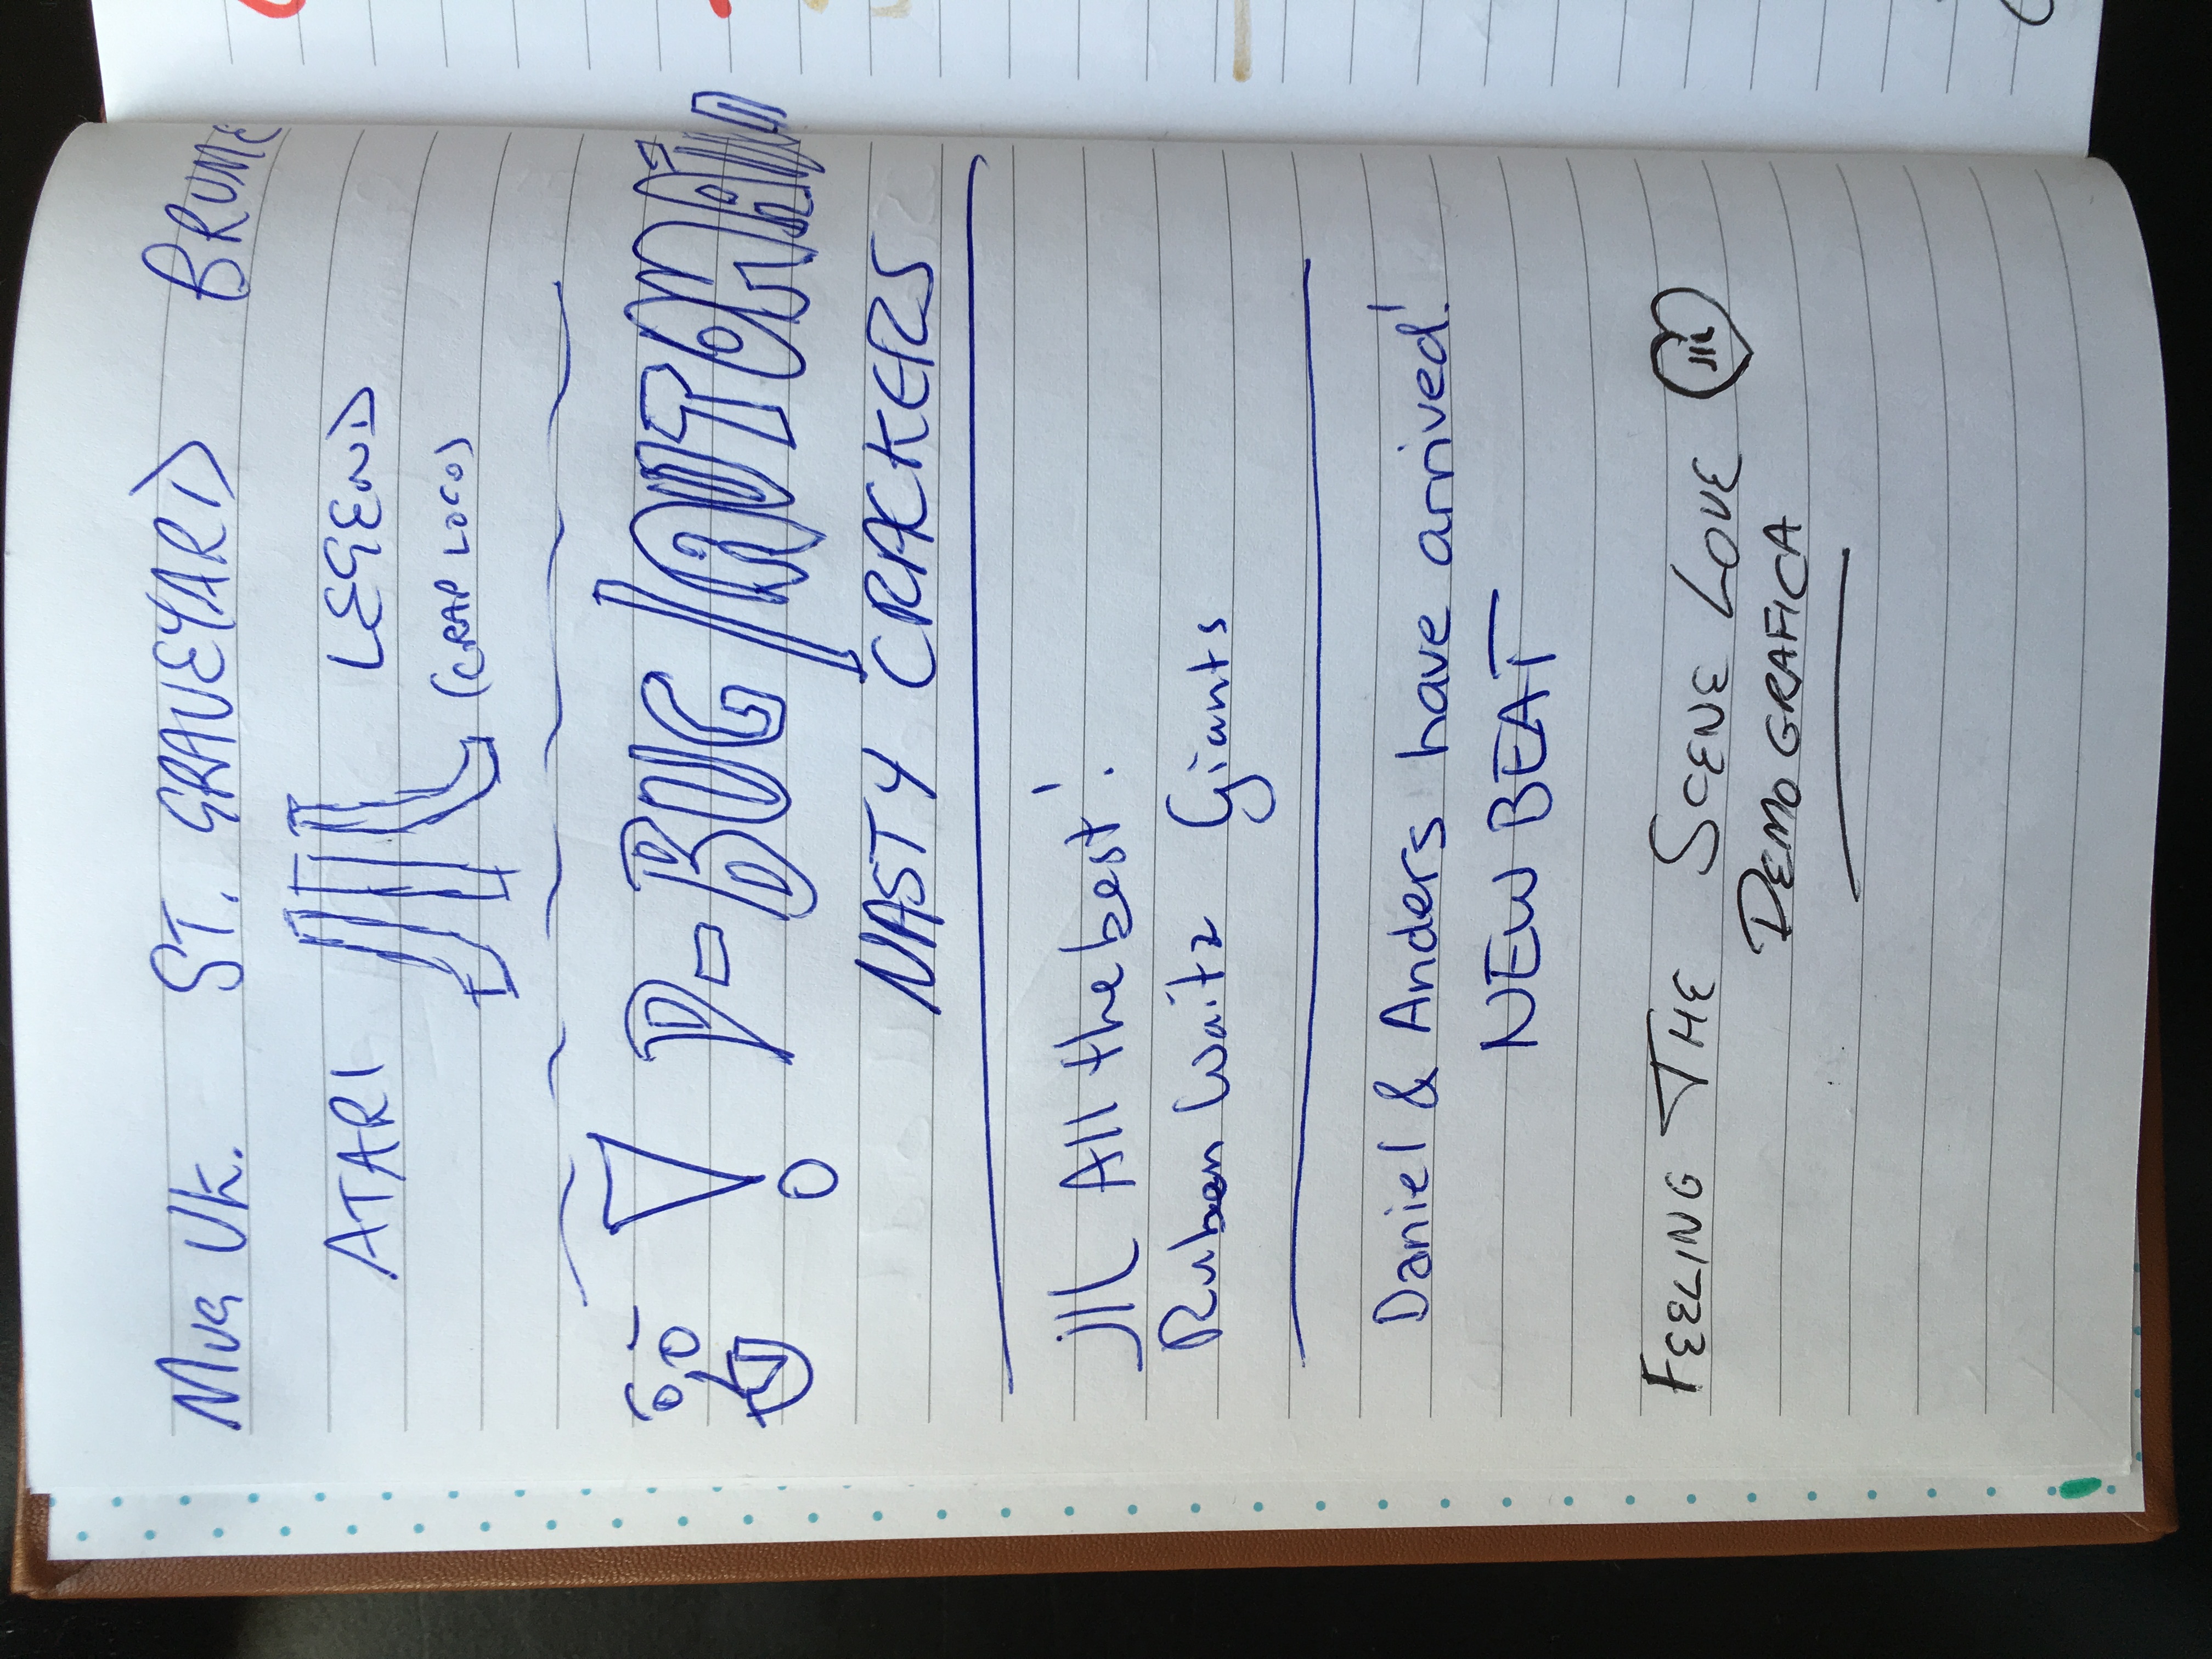 Mug Uk. ST. GRAVEYARD BRUME
ATARI LEGEND
(CRAP LOGO)
D-BUG
NASTY CRACKERS
JIL All the best!
Ruben Waitz Giants
Daniel & Anders have arrived!
NEW BEAT
FEELING THE SCENE LOVE
DEMOGRAFICA